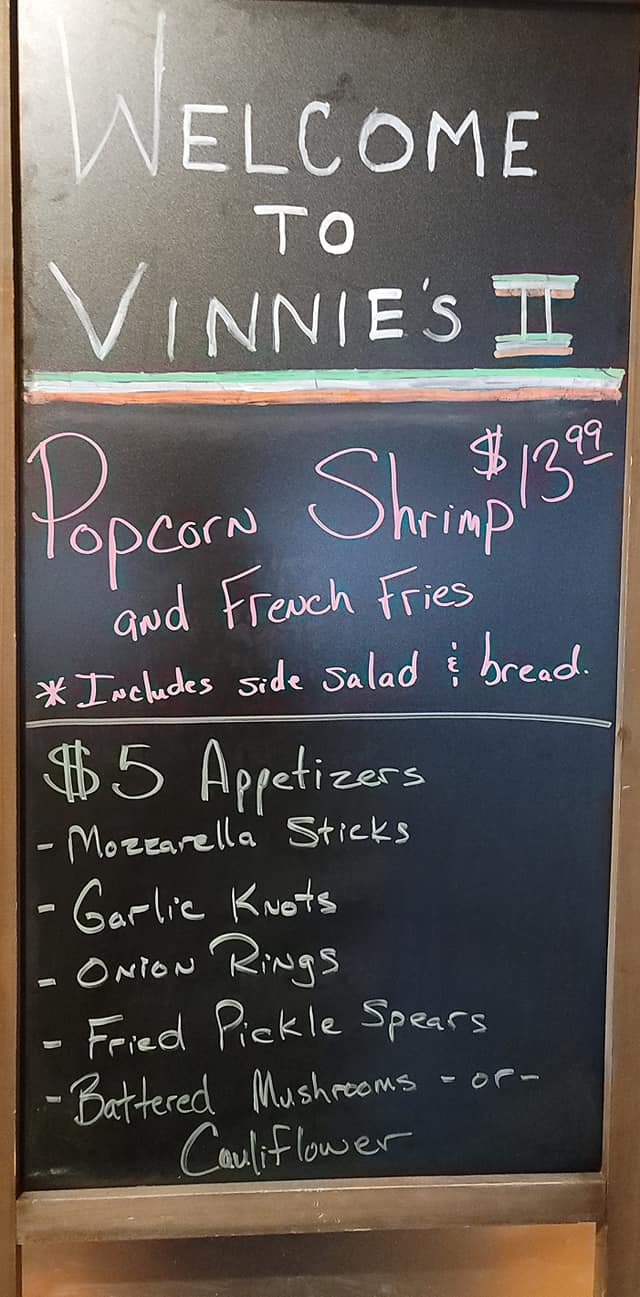 WELCOME
TO
VINNIE'S II
$13.99
Popcorn Shrimp
and French Fries
*Includes side salad & bread.
$5 Appetizers
- Mozzarella Sticks
- Garlic Knots
- Onion Rings
- Fried Pickle Spears
- Battered Mushrooms - or -
Cauliflower